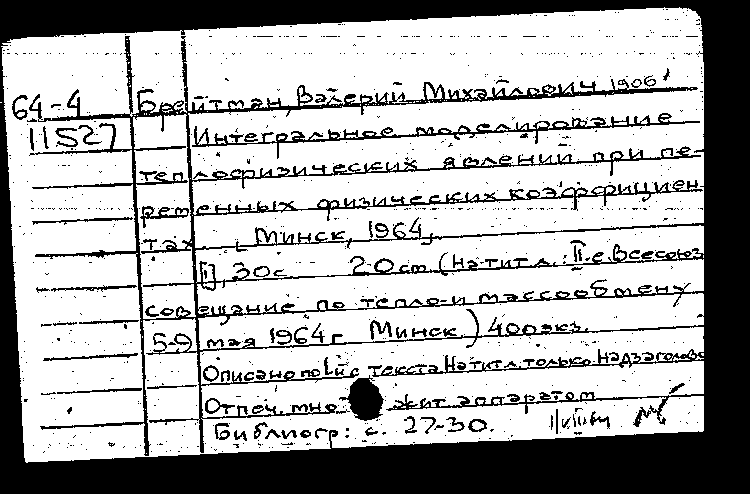 64-4 Брейтман, Валерий Михайлович, 1906
11527 Интегральное моделирование
теплофизических явлений при пе-
ременных физических коэффициен
тах. Минск, 1964.
[1], 30с 20 cm (На тит л.: II-е Всесоюз
совещание по тепло-и массообмену
5-9 мая 1964г Минск) 400 экз.
Описано по 1-й с текста На тит л. только надзаголово
Отпеч. мно жит аппаратом
Библиогр: с. 27-30.